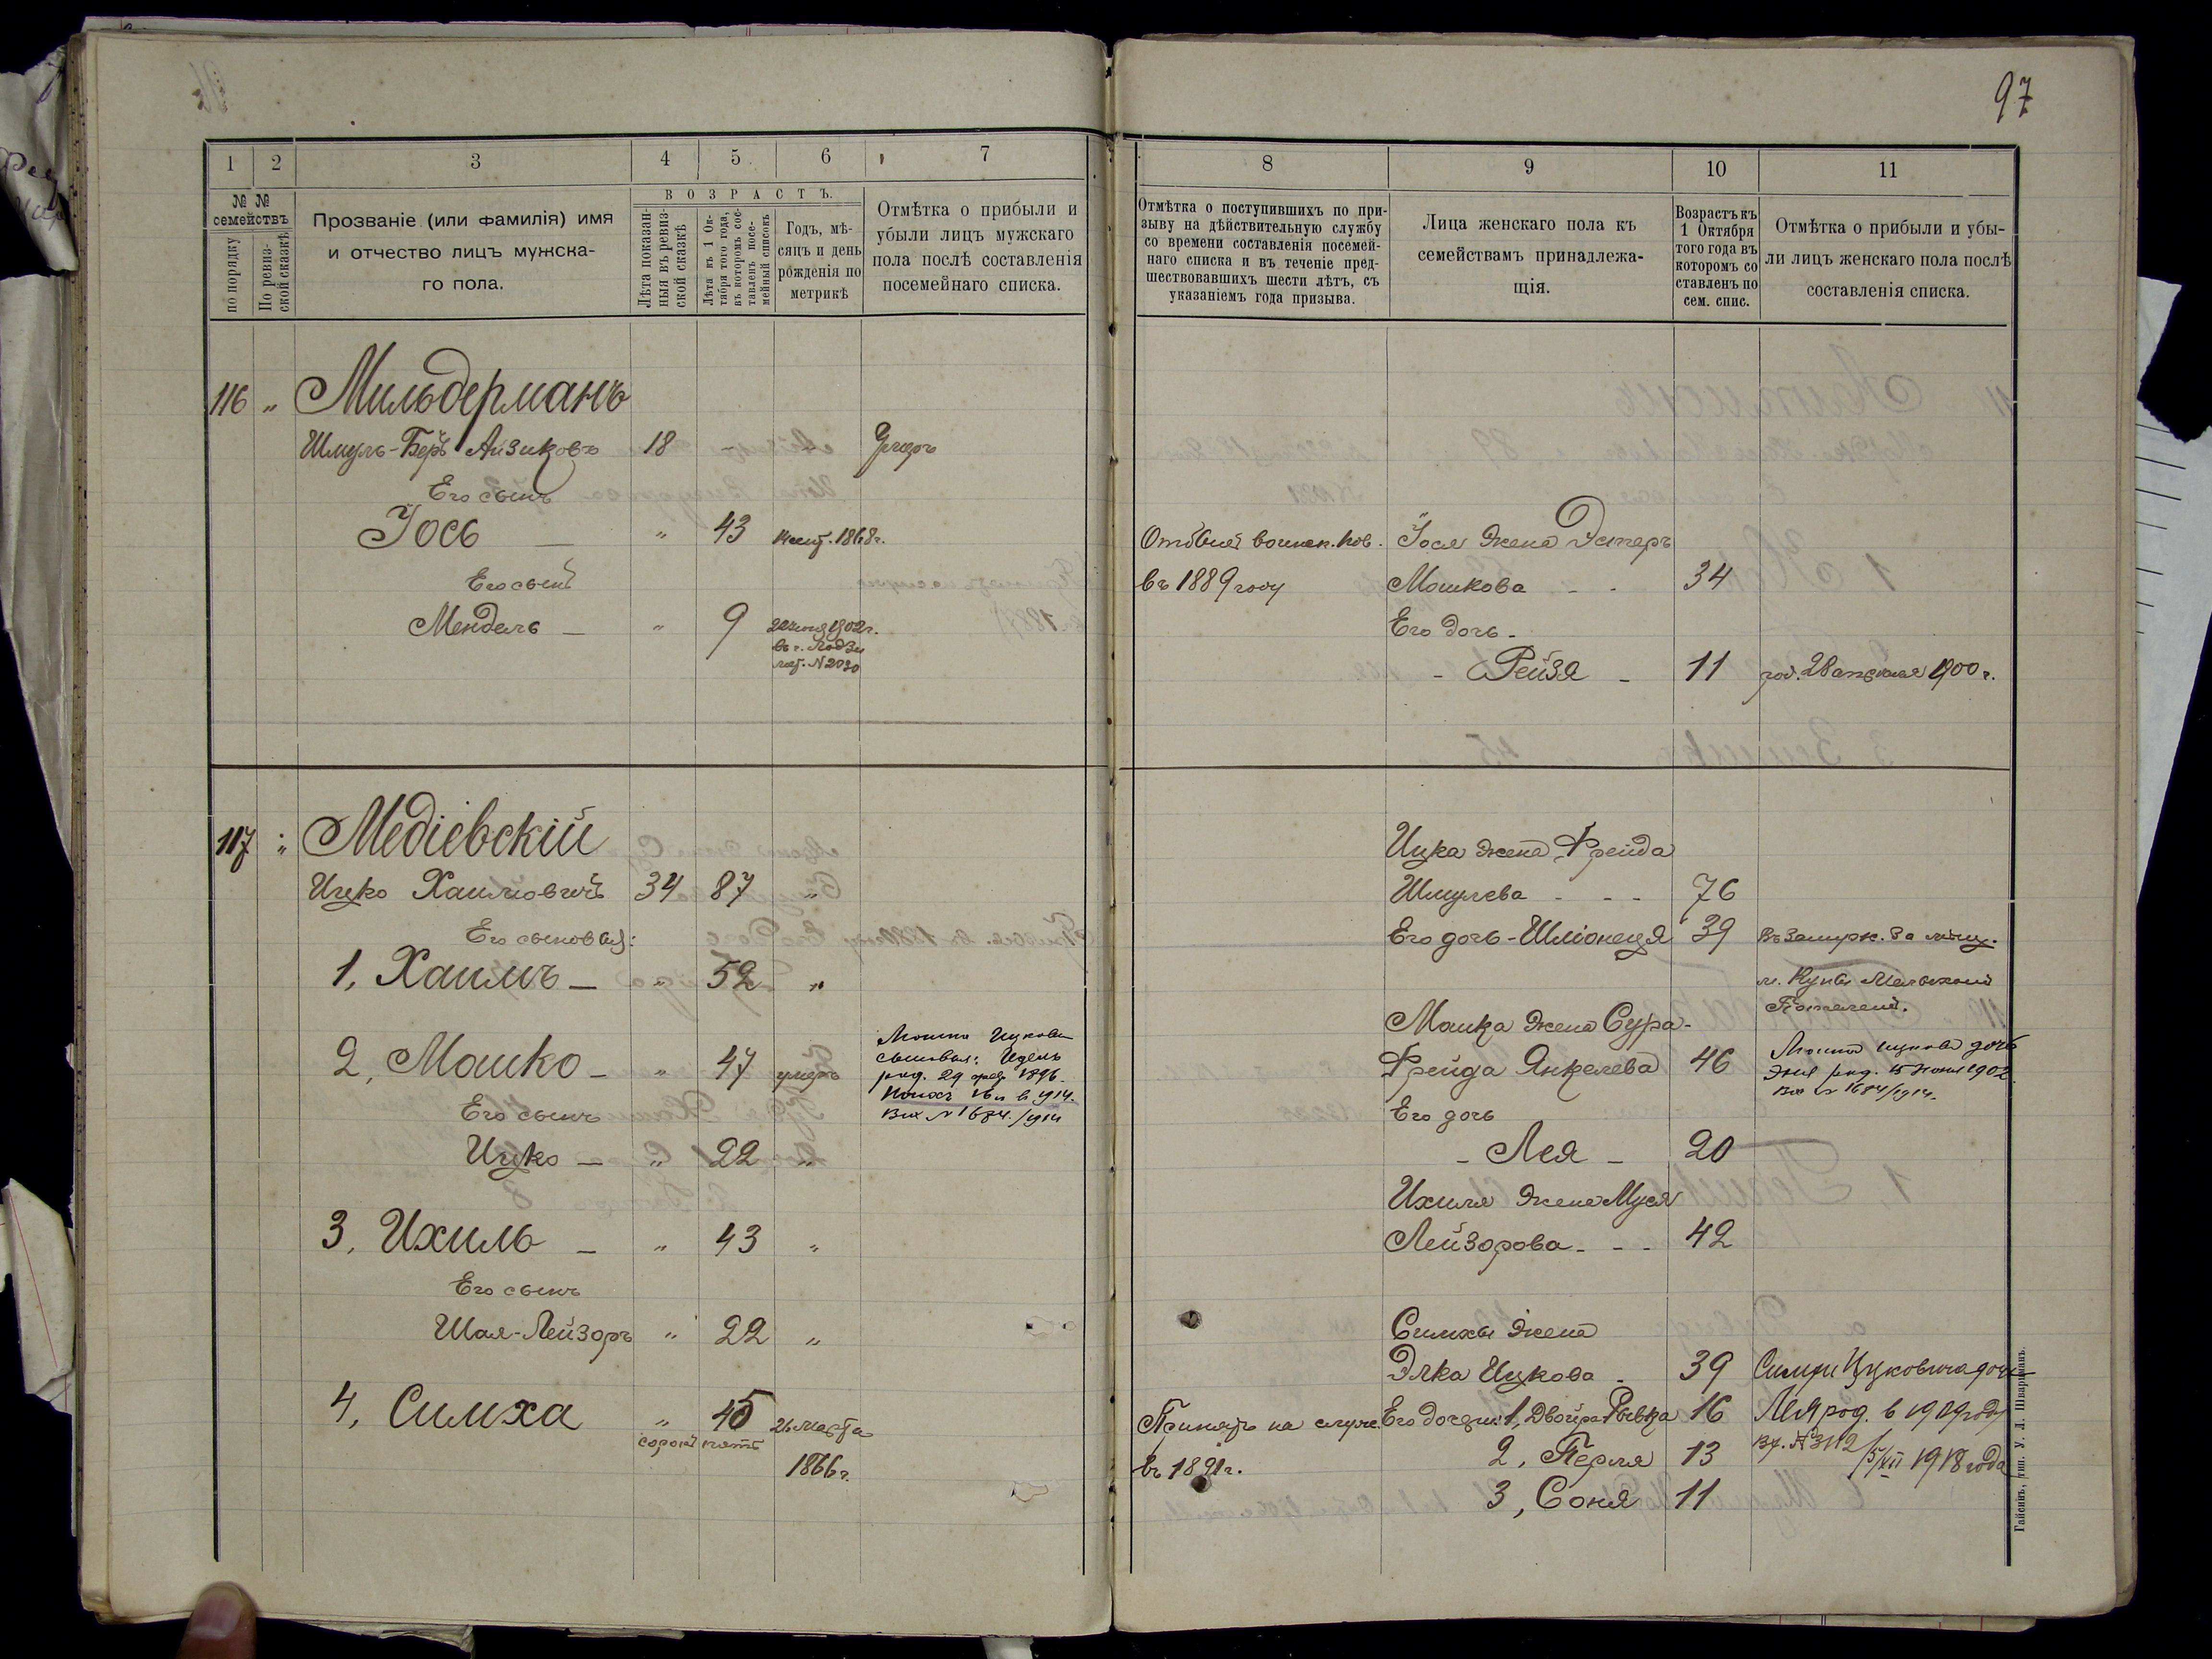 97
1 2 3 4 5 6 7
№ № семействъ
по порядку
По ревиз-
ской сказкѣ
Прозваніе (или фамилія) имя
и отчество лицъ мужска-
го пола.
ВОЗРАСТЪ.
Лѣта показан-
ныя въ ревиз-
ской сказкѣ
Лѣта къ 1 Ок-
тября того года,
въ которомъ сос-
тавленъ посе-
мейный списокъ
Годъ, мѣ-
сяцъ и день
рожденія по
метрикѣ
Отмѣтка о прибыли и
убыли лицъ мужскаго
пола послѣ составленія
посемейнаго списка.
116 „ Мильдерманъ
Шмуль-Беръ Айзиковъ 18 - Умеръ
Его сынъ
Іось — „ 43 1868г.
Его сынъ
Мендель — „ 9 1902г.
въ г. Лодзи
№ 2030
117 „ Медіевскій
Ицко Хаимовичъ 34 87 „
Его сыновья:
1, Хаимъ — „ 52 „
2, Мошко — „ 47 умеръ
Мошко Ицкова
сыновья: Идель
род. 29 февр 1896
1914.
Вх № 1684./1914
Его сынъ
Ицко — „ 22 „
3, Ихиль — „ 43 „
Его сынъ
Шая-Лейзоръ „ 22 „
4, Симха „ 45 марта
сорокъ пять
1866г.
8 9 10 11
Отмѣтка о поступившихъ по при-
зыву на дѣйствительную службу
со времени составленія посемей-
наго списка и въ теченіе пред-
шествовавшихъ шести лѣтъ, съ
указаніемъ года призыва.
Лица женскаго пола къ
семействамъ принадлежа-
щія.
Возрастъ къ
1 Октября
того года въ
которомъ со
ставленъ по
сем. спис.
Отмѣтка о прибыли и убы-
ли лицъ женскаго пола послѣ
составленія списка.
Отбылъ воинск. пов. Іося жена Эстеръ
въ 1889 году Мошкова - - 34
Его дочь -
- Рейзя - 11 род. 28 апрѣля 1900 г.
Ицка жена Фрейда
Шмулева - - - 76
Его дочь - Шліонеця 39 Въ замуж. за мѣщ.
м. Купы
Мошка жена Сура-
Фрейда Янкелева 46
Мошка Ицкова дочь
Эня род. 15 Іюня 1902.
Вх № 1684/1914.
Его дочь
- Лея - 20
Ихиля жена Муся
Лейзорова - - - 42
Симхы жена
Элка Ицкова - 39 Симхи Ицковича дочь
Принятъ на служ. Его дочери: 1, Двойра Рывка 16 Лея род. в 1909 году
въ 1891г. 2, Перля 13 Вх. № 3112/5/XII 1918 года
3, Соня 11
Гайсинъ, тип. У. Л. Шварцманъ.